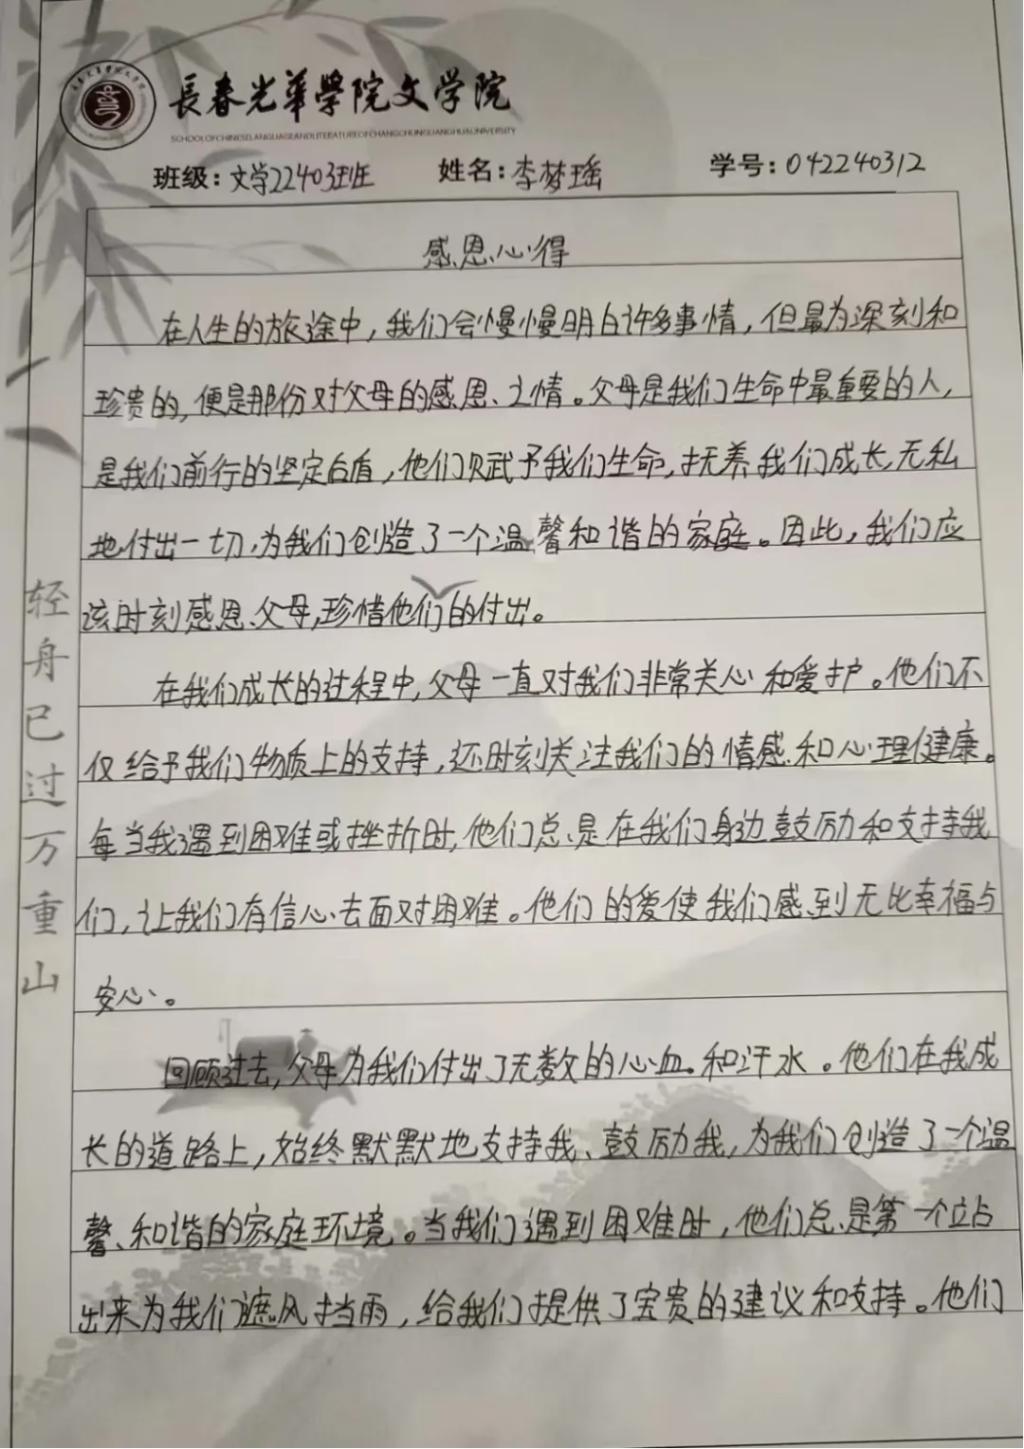 長春光華學院文学院
SCHOOL OF CHINESE LANGUAGE AND LITERATURE OF CHANGCHUN GUANGHUA UNIVERSITY
班级：文学22403班 姓名：李梦瑶 学号：042240312
感恩心得
在人生的旅途中，我们会慢慢明白许多事情，但最为深刻和
珍贵的，便是那份对父母的感恩之情。父母是我们生命中最重要的人，
是我们前行的坚定后盾，他们赋予我们生命，抚养我们成长，无私
地付出一切，为我们创造了一个温馨和谐的家庭。因此，我们应
该时刻感恩父母，珍惜他们的付出。
在我们成长的过程中，父母一直对我们非常关心和爱护。他们不
仅给予我们物质上的支持，还时刻关注我们的情感和心理健康。
每当我遇到困难或挫折时，他们总是在我们身边鼓励和支持我
们，让我们有信心去面对困难。他们的爱使我们感到无比幸福与
安心。
回顾过去，父母为我们付出了无数的心血和汗水。他们在我成
长的道路上，始终默默地支持我、鼓励我，为我们创造了一个温
馨、和谐的家庭环境。当我们遇到困难时，他们总是第一个站
出来为我们遮风挡雨，给我们提供了宝贵的建议和支持。他们
轻舟已过万重山